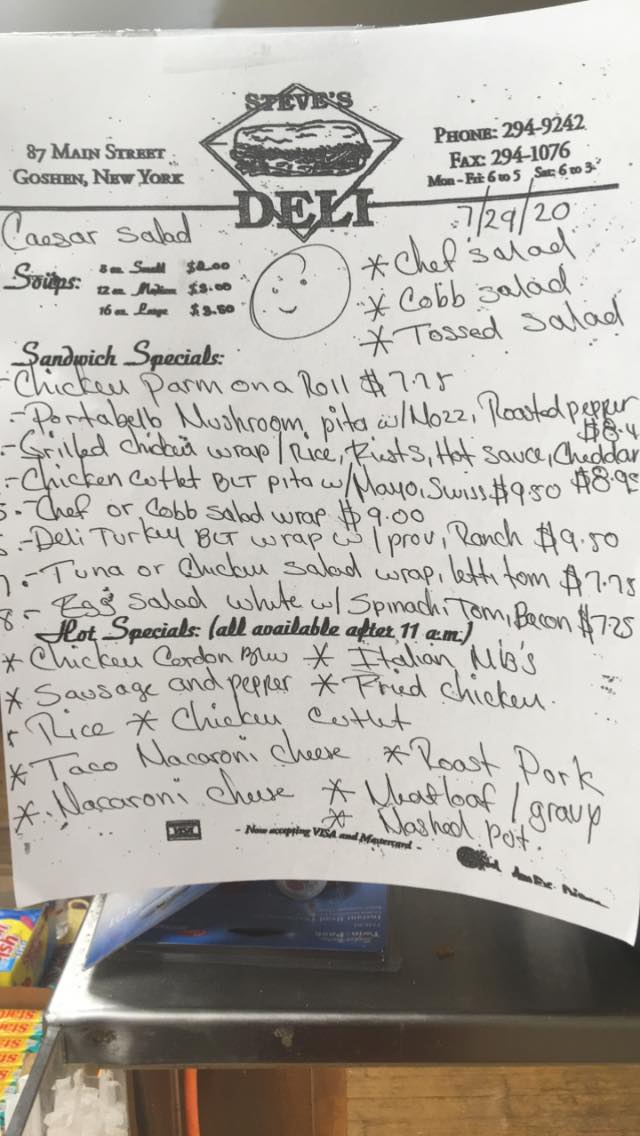 STEVE'S
DELI
87 MAIN STREET
GOSHEN, NEW YORK
PHONE: 294-9242
FAX: 294-1076
Mon - Fri: 6 to 5 Sat: 6 to 3
7/29/20
Caesar Salad
* Chef salad
* Cobb salad
* Tossed Salad
Soups:
8 oz. Small $2.00
12 oz. Medium $3.00
16 oz. Large $3.50
Sandwich Specials:
- Chicken Parm on a Roll $7.75
- Portabello Mushroom pita w/Mozz, Roasted pepper
- Grilled chicken wrap/Rice, Hot sauce, Cheddar
$8.95
- Chicken Cutlet BLT pita w/Mayo, Swiss $9.50
5.- Chef or Cobb salad wrap $9.00
- Deli Turkey BLT wrap w/prov, Ranch $9.50
7.- Tuna or Chicken Salad wrap, lett, tom $7.75
8.- Egg Salad white w/Spinach, Tom, Bacon $7.25
Hot Specials: (all available after 11 a.m.)
* Chicken Cordon Blw * Italian MB's
* Sausage and pepper * Fried chicken
* Rice * Chicken Cutlet
* Taco Macaroni cheese * Roast Pork
* Macaroni cheese * Meatloaf / gravy
* Mashed pot.
VISA
- Now accepting VISA and Mastercard -